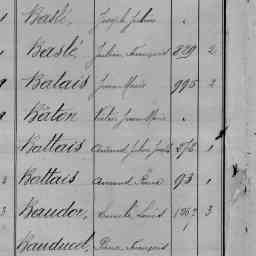 Baslé, Joseph Julien "
Baslé, Julien François 829 2
Batais Jean Marie 995 2
Bâton Jean Marie "
Battais Armand Julien 272 1
Battais Armand Pierre 93 1
Baudor, Louis 3
Bauducel, Pierre François